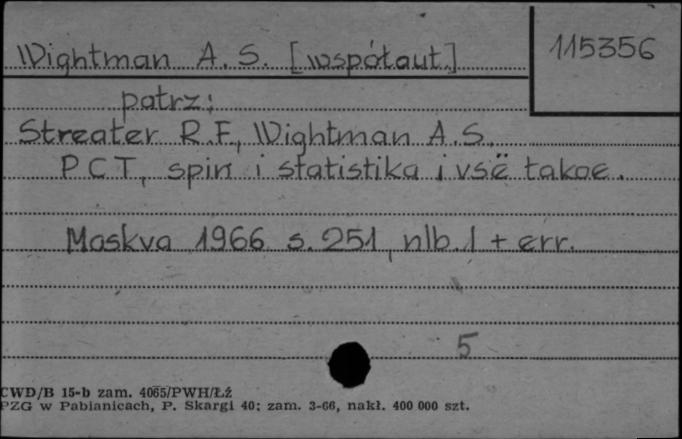 Wightman A. S. [współaut.]
115356
patrz:
Streater R.F., Wightman A.S.
PCT, spin i statistika i vsë takoe.
Moskva 1966 s. 251, nlb. 1 + err.
5
CWD/B 15-b zam. 4065/PWH/Łź
PZG w Pabianicach, P. Skargi 40; zam. 3-66, nakł. 400 000 szt.